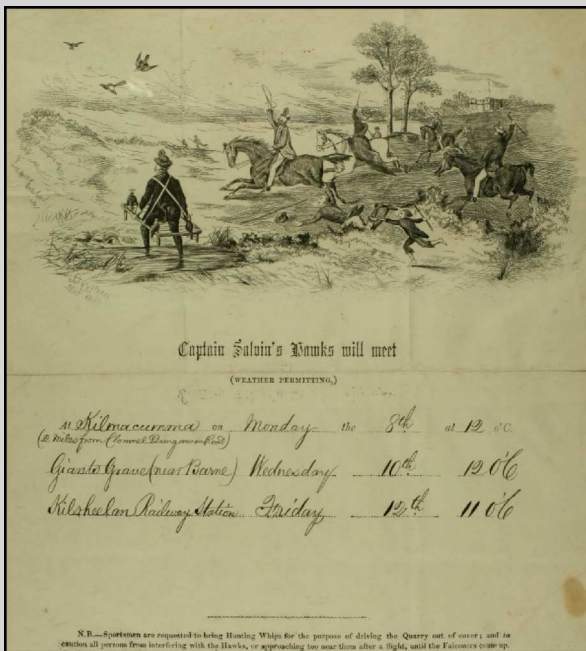 Captain Salvin's Hawks will meet
(WEATHER PERMITTING,)
At Kilmacumma on Monday the 8th at 12 o'C.
(2 Miles from Clonmel Dungarvan Road)
Giants Grave (near Barne) Wednesday 10th 12 o'C
Kilsheelan Railway Station Friday 12th 11 o'C
N.B.—Sportsmen are requested to bring Hunting Whips for the purpose of driving the Quarry out of cover; and to
caution all persons from interfering with the Hawks, or approaching too near them after a flight, until the Falconers come up.